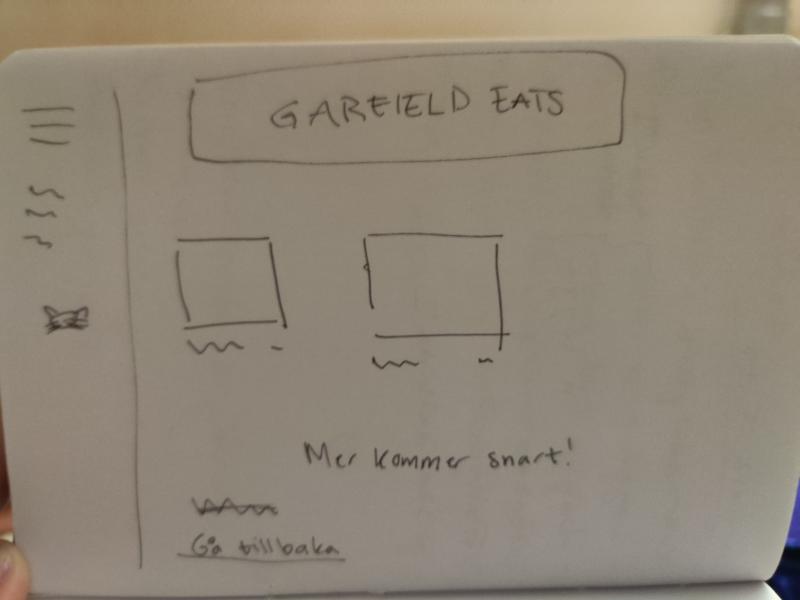 GARFIELD EATS
Mer kommer snart!
Gå tillbaka